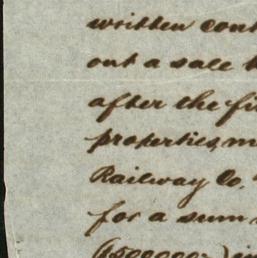 written cont
out a sale t
after the fi
properties, m
Railway Co.
for a sum